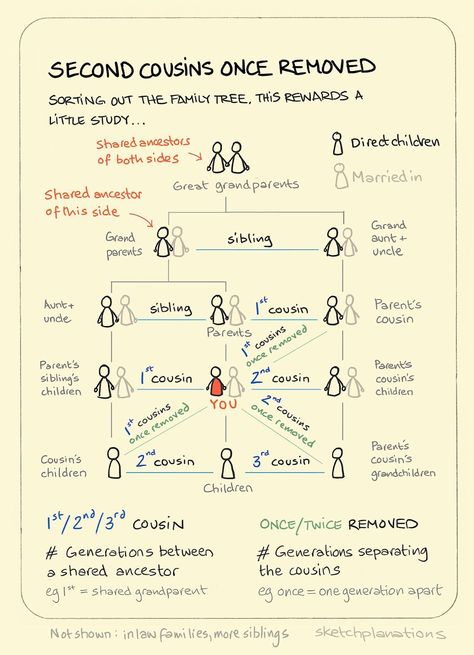 SECOND COUSINS ONCE REMOVED
SORTING OUT THE FAMILY TREE, THIS REWARDS A
LITTLE STUDY...
Shared ancestors
of both sides
Direct children
Married in
Great grandparents
Shared ancestor
of this side
Grand
parents
sibling
Grand
aunt +
uncle
Aunt +
uncle
sibling
Parents
1st cousin
Parent's
cousin
1st cousins
once removed
Parent's
sibling's
children
1st cousin
YOU
2nd cousin
Parent's
cousin's
children
1st cousins
once removed
2nd cousins
once removed
Cousin's
children
2nd cousin
Children
3rd cousin
Parent's
cousin's
grandchildren
1st/2nd/3rd COUSIN
# Generations between
a shared ancestor
eg 1st = shared grandparent
ONCE/TWICE REMOVED
# Generations separating
the cousins
eg once = one generation apart
Not shown: in law families, more siblings
sketchplanations